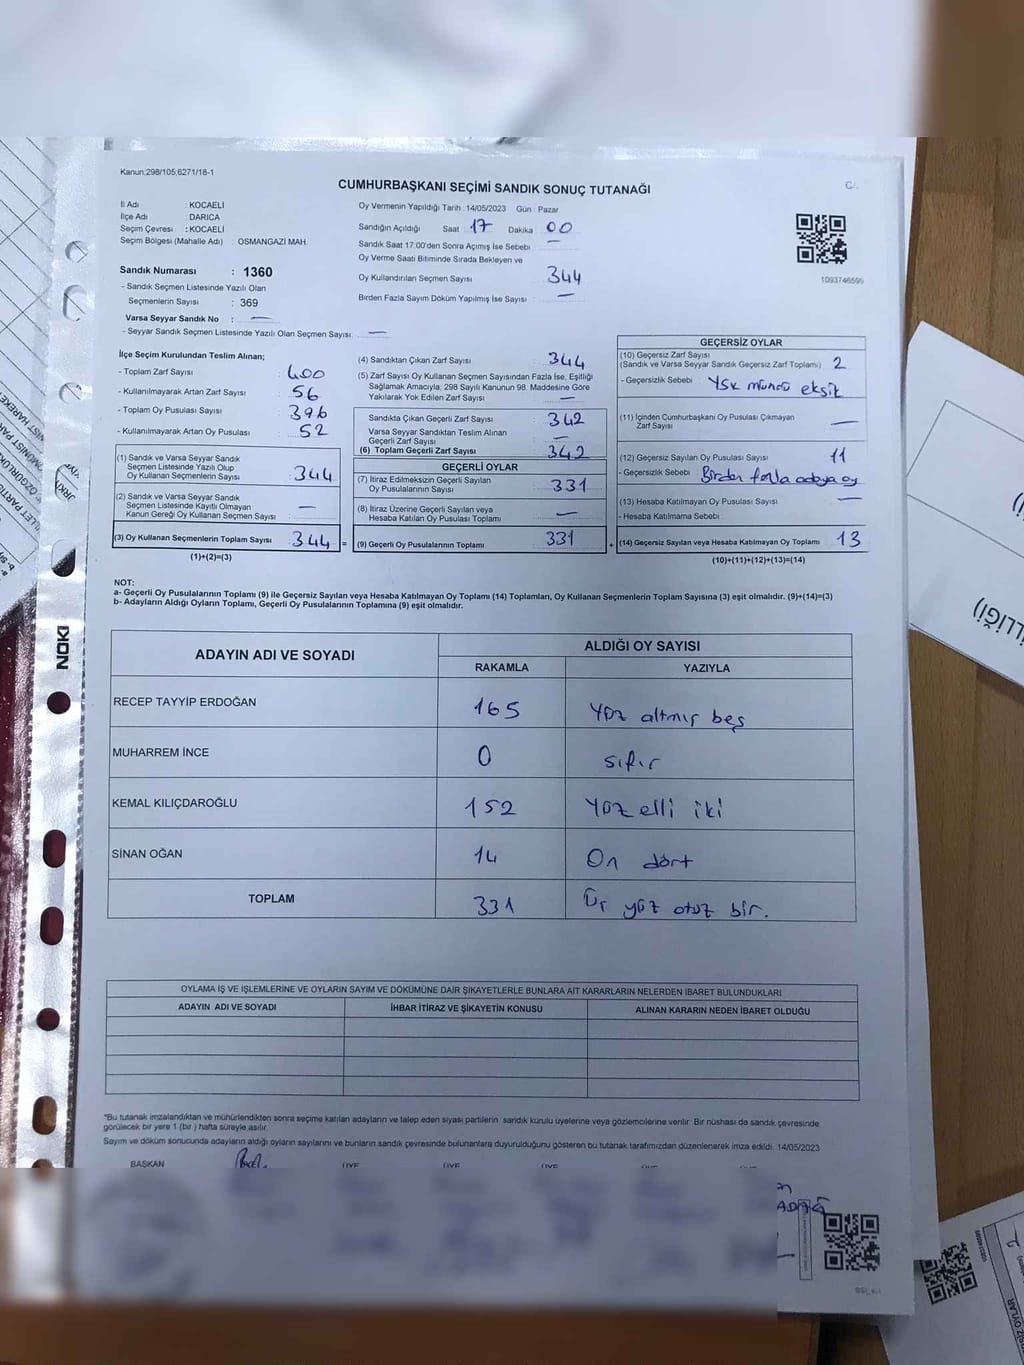 Kanun;298/105;6271/18-1
CUMHURBAŞKANI SEÇİMİ SANDIK SONUÇ TUTANAĞI
İl Adı : KOCAELİ
İlçe Adı : DARICA
Seçim Çevresi : KOCAELİ
Seçim Bölgesi (Mahalle Adı) : OSMANGAZİ MAH.
Sandık Numarası : 1360
- Sandık Seçmen Listesinde Yazılı Olan
Seçmenlerin Sayısı : 369
Varsa Seyyar Sandık No : —
- Seyyar Sandık Seçmen Listesinde Yazılı Olan Seçmen Sayısı: —
Oy Vermenin Yapıldığı Tarih :14/05/2023 Gün : Pazar
Sandığın Açıldığı Saat 17 Dakika 00
Sandık Saat 17:00'den Sonra Açılmış İse Sebebi —
Oy Verme Saati Bitiminde Sırada Bekleyen ve
Oy Kullandırılan Seçmen Sayısı 344
Birden Fazla Sayım Döküm Yapılmış İse Sayısı —
1093746599
İlçe Seçim Kurulundan Teslim Alınan;
- Toplam Zarf Sayısı : 400
- Kullanılmayarak Artan Zarf Sayısı : 56
- Toplam Oy Pusulası Sayısı : 396
- Kullanılmayarak Artan Oy Pusulası : 52
(1) Sandık ve Varsa Seyyar Sandık
Seçmen Listesinde Yazılı Olup
Oy Kullanan Seçmenlerin Sayısı : 344
(2) Sandık ve Varsa Seyyar Sandık
Seçmen Listesinde Kayıtlı Olmayan
Kanun Gereği Oy Kullanan Seçmen Sayısı : —
(3) Oy Kullanan Seçmenlerin Toplam Sayısı : 344 =
(1)+(2)=(3)
(4) Sandıktan Çıkan Zarf Sayısı : 344
(5) Zarf Sayısı Oy Kullanan Seçmen Sayısından Fazla İse, Eşitliği
Sağlamak Amacıyla; 298 Sayılı Kanunun 98. Maddesine Göre
Yakılarak Yok Edilen Zarf Sayısı : —
Sandıkta Çıkan Geçerli Zarf Sayısı : 342
Varsa Seyyar Sandıktan Teslim Alınan
Geçerli Zarf Sayısı : —
(6) Toplam Geçerli Zarf Sayısı : 342
GEÇERLİ OYLAR
(7) İtiraz Edilmeksizin Geçerli Sayılan
Oy Pusulalarının Sayısı : 331
(8) İtiraz Üzerine Geçerli Sayılan veya
Hesaba Katılan Oy Pusulası Toplamı : —
(9) Geçerli Oy Pusulalarının Toplamı : 331 +
GEÇERSİZ OYLAR
(10) Geçersiz Zarf Sayısı
(Sandık ve Varsa Seyyar Sandık Geçersiz Zarf Toplamı) : 2
- Geçersizlik Sebebi : YSK mührü eksik
(11) İçinden Cumhurbaşkanı Oy Pusulası Çıkmayan
Zarf Sayısı : —
(12) Geçersiz Sayılan Oy Pusulası Sayısı : 11
- Geçersizlik Sebebi : Birden fazla adaya oy
(13) Hesaba Katılmayan Oy Pusulası Sayısı : —
- Hesaba Katılmama Sebebi :
(14) Geçersiz Sayılan veya Hesaba Katılmayan Oy Toplamı : 13
(10)+(11)+(12)+(13)=(14)
NOT:
a- Geçerli Oy Pusulalarının Toplamı (9) ile Geçersiz Sayılan veya Hesaba Katılmayan Oy Toplamı (14) Toplamları, Oy Kullanan Seçmenlerin Toplam Sayısına (3) eşit olmalıdır. (9)+(14)=(3)
b- Adayların Aldığı Oyların Toplamı, Geçerli Oy Pusulalarının Toplamına (9) eşit olmalıdır.
ADAYIN ADI VE SOYADI ALDIĞI OY SAYISI
RAKAMLA YAZIYLA
RECEP TAYYİP ERDOĞAN 165 Yüz altmış beş
MUHARREM İNCE 0 sıfır
KEMAL KILIÇDAROĞLU 152 Yüz elli iki
SİNAN OĞAN 14 On dört
TOPLAM 331 Üç yüz otuz bir.
OYLAMA İŞ VE İŞLEMLERİNE VE OYLARIN SAYIM VE DÖKÜMÜNE DAİR ŞİKAYETLERLE BUNLARA AİT KARARLARIN NELERDEN İBARET BULUNDUKLARI
ADAYIN ADI VE SOYADI İHBAR İTİRAZ VE ŞİKAYETİN KONUSU ALINAN KARARIN NEDEN İBARET OLDUĞU
*Bu tutanak imzalandıktan ve mühürlendikten sonra seçime katılan adayların ve talep eden siyasi partilerin sandık kurulu üyelerine veya gözlemcilerine verilir. Bir nüshası da sandık çevresinde
görülecek bir yere 1 (bir ) hafta süreyle asılır.
Sayım ve döküm sonucunda adayların aldığı oyların sayılarını ve bunların sandık çevresinde bulunanlara duyurulduğunu gösteren bu tutanak tarafımızdan düzenlenerek imza edildi. 14/05/2023
BAŞKAN ÜYE ÜYE ÜYE ÜYE ÜYE
NOKI